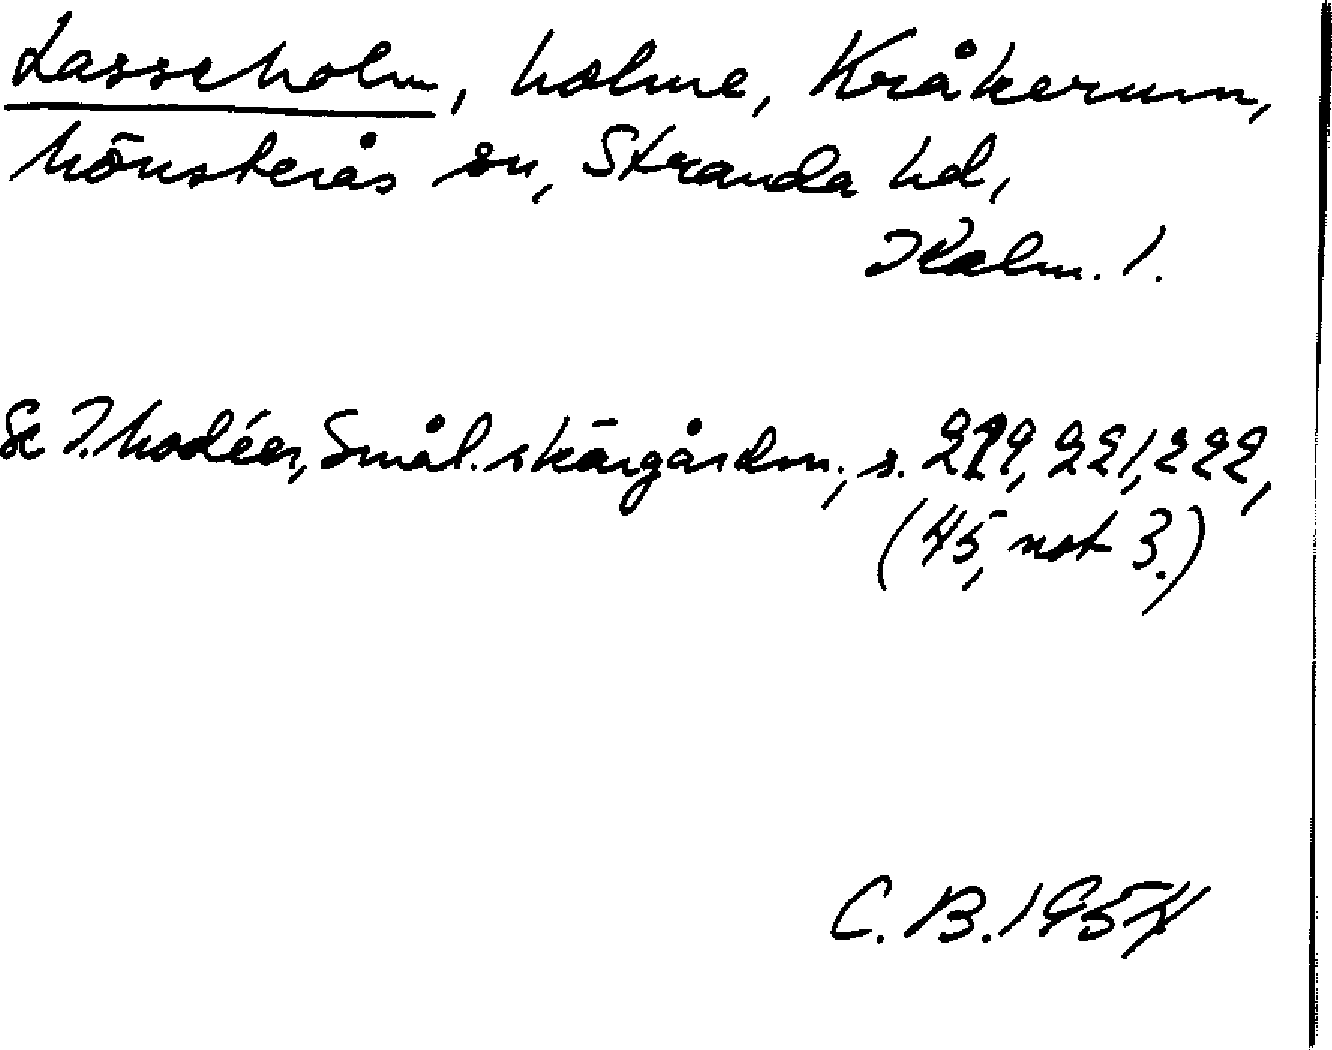 Lasseholm, holme, Kråkerum,
Mönsterås sn, Stranda hd,
Kalm. l.
Se I. Modéer, Smål. skärgårdsn., s. 219, 221, 222,
(45, not 3.)
C. B. 1954